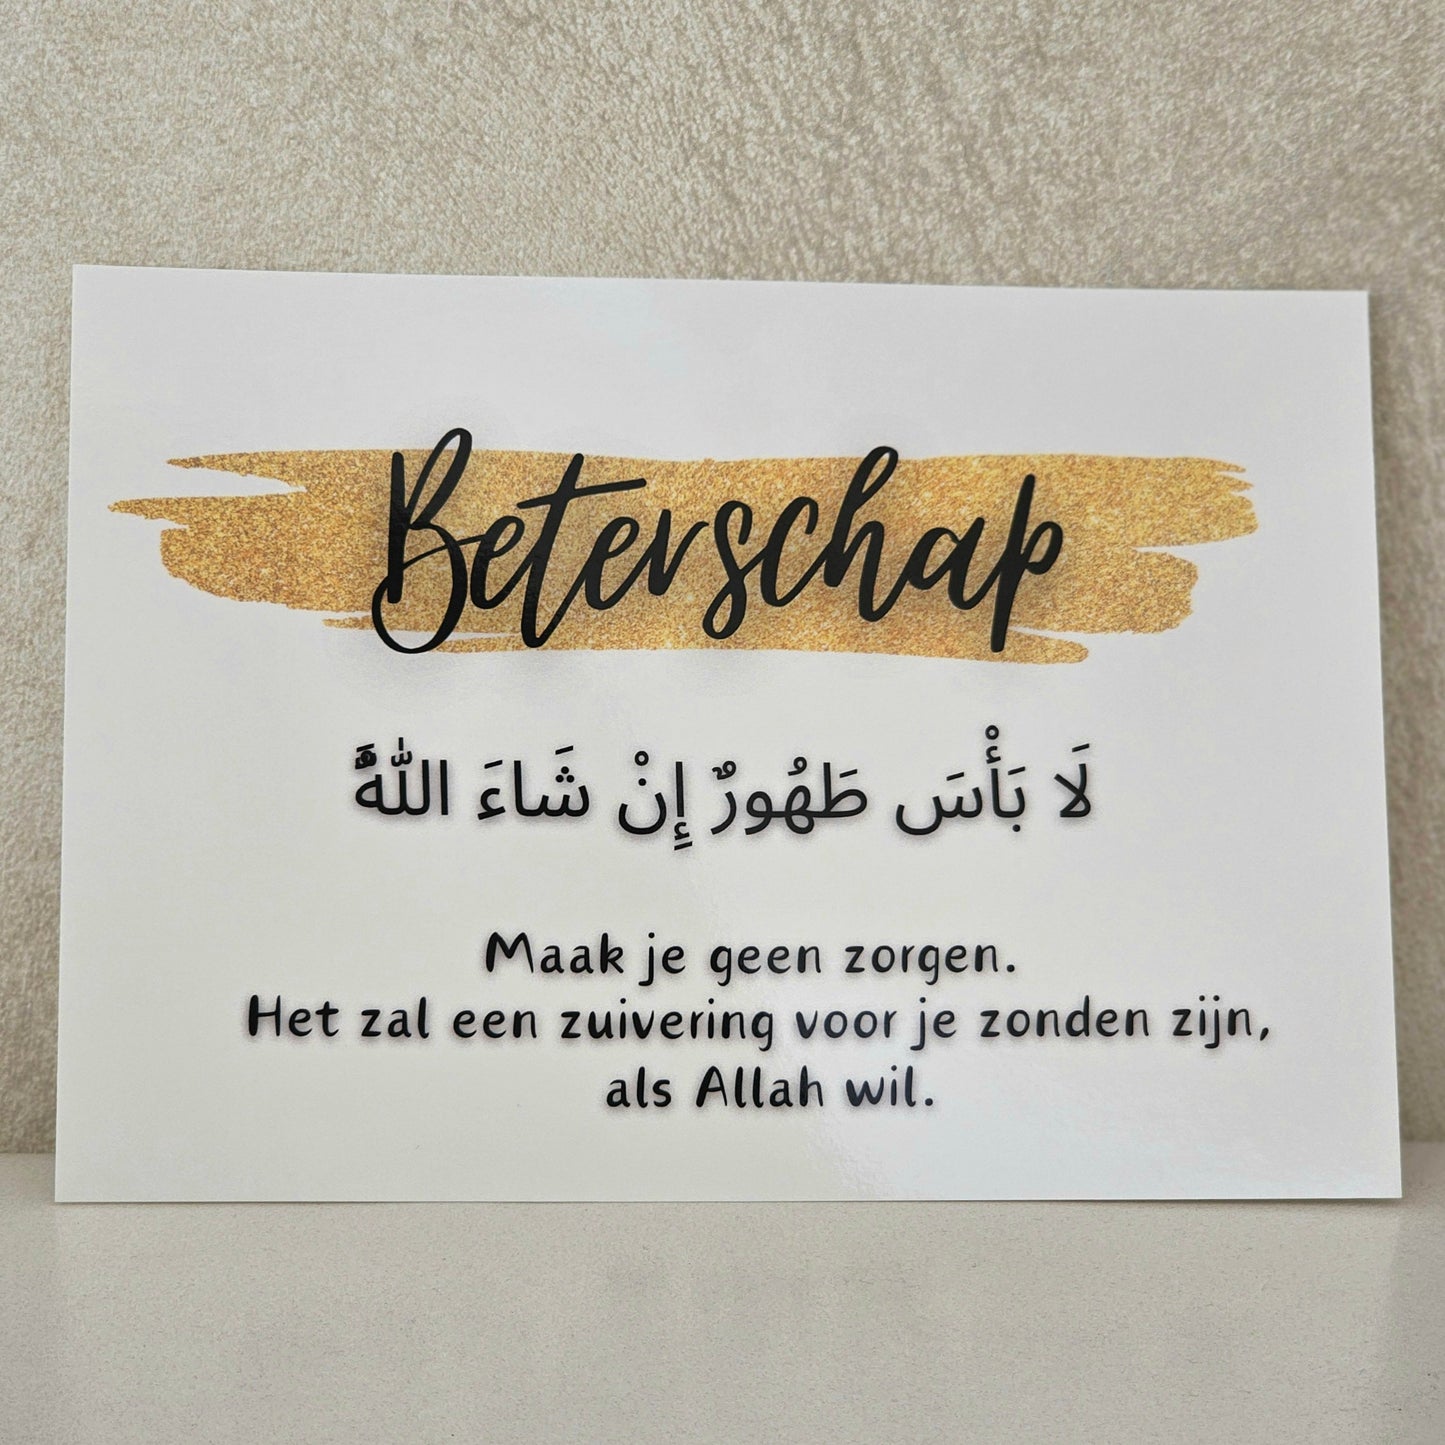 Beterschap
لَا بَأْسَ طَهُورٌ إِنْ شَاءَ اللَّهُ
Maak je geen zorgen.
Het zal een zuivering voor je zonden zijn,
als Allah wil.